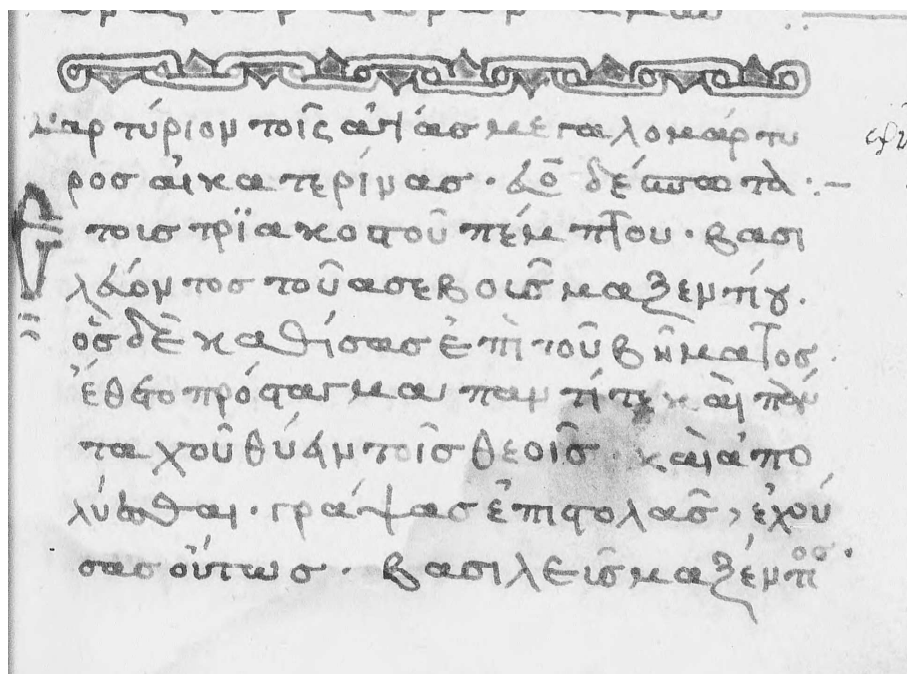 μαρτύριον τοῖς ἁγίας μεγαλομάρτυ
ρος αἰκατερίνας· δέσποτα·
Ετοις τριακοστοῦ πέμπτου· βασι
λεύοντος τοῦ ασεβοῦς μαξεντίου.
ὃς δὲ καθίσας ἐπὶ τοῦ βήματος
ἔθετο πρόσταγμα παντί τε καὶ παν
ταχοῦ θύειν τοῖς θεοῖς· καὶ ἀπο
γράψας ἐπιστολας, ἐχού
σας οὕτως· βασιλεῖς μαξέντιος·